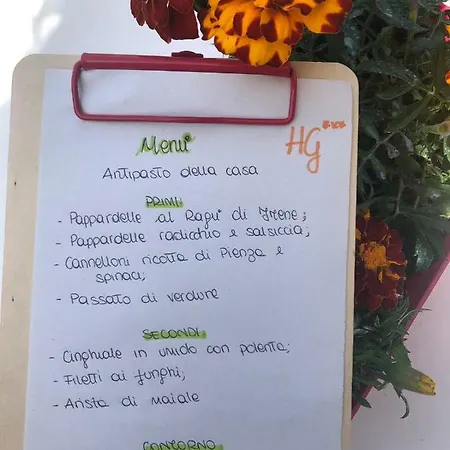 Menù
HG
Antipasto della casa
PRIMI
- Pappardelle al Ragu° di Irene;
- Pappardelle radicchio e salsiccia;
- Cannelloni ricotta di Pienza e
spinaci;
- Passato di verdure
SECONDI
- Cinghiale in umido con polenta;
- Filetti ai funghi;
- Arista di maiale
CONTORNO